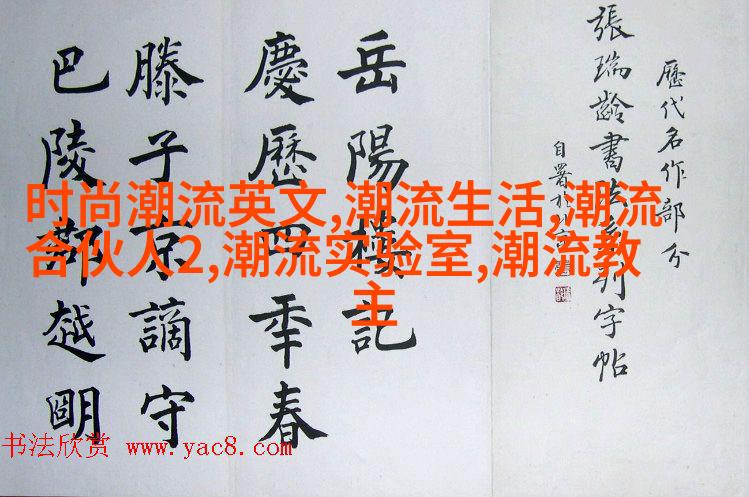 歷代名作部分
張瑞齡書法系列字帖
自署於北京
岳陽樓記
慶歷四年春
滕子京謫守
巴陵郡越明
时尚潮流英文,潮流生活,潮流
合伙人2,潮流实验室,潮流教
主
书法欣赏 www.yac8.com